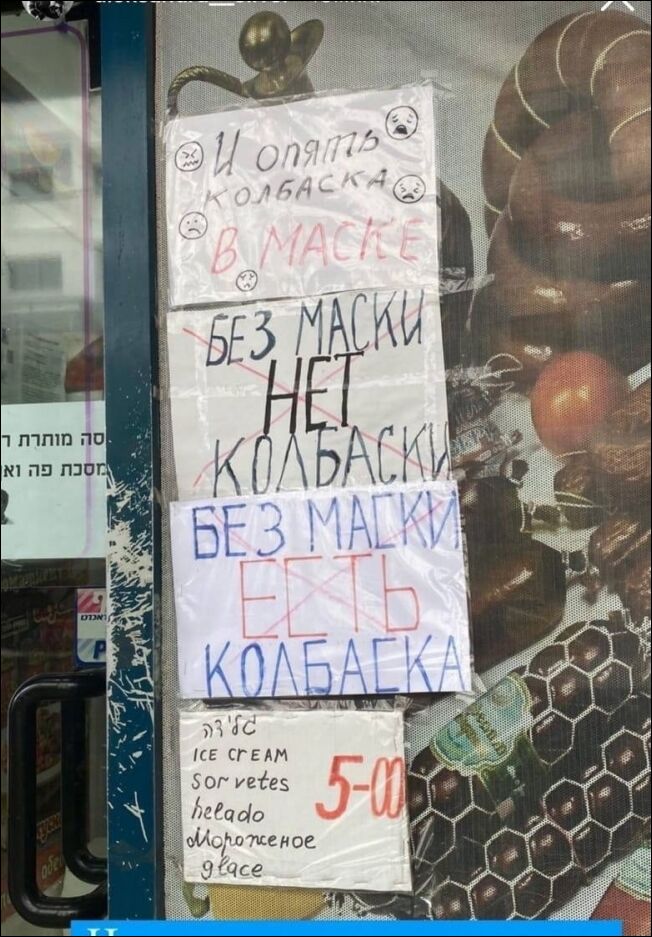 И опять
колбаска
в маске
БЕЗ МАСКИ
НЕТ
КОЛБАСКИ
БЕЗ МАСКИ
ЕСТЬ
КОЛБАСКА
גלידה
ICE CREAM
Sorvetes
helado
Мороженое
glace
5-00
סה מותרת
מסכת פה